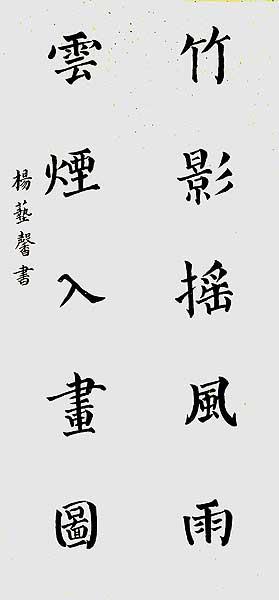 竹影摇風雨
雲煙入畫圖
楊藝馨書